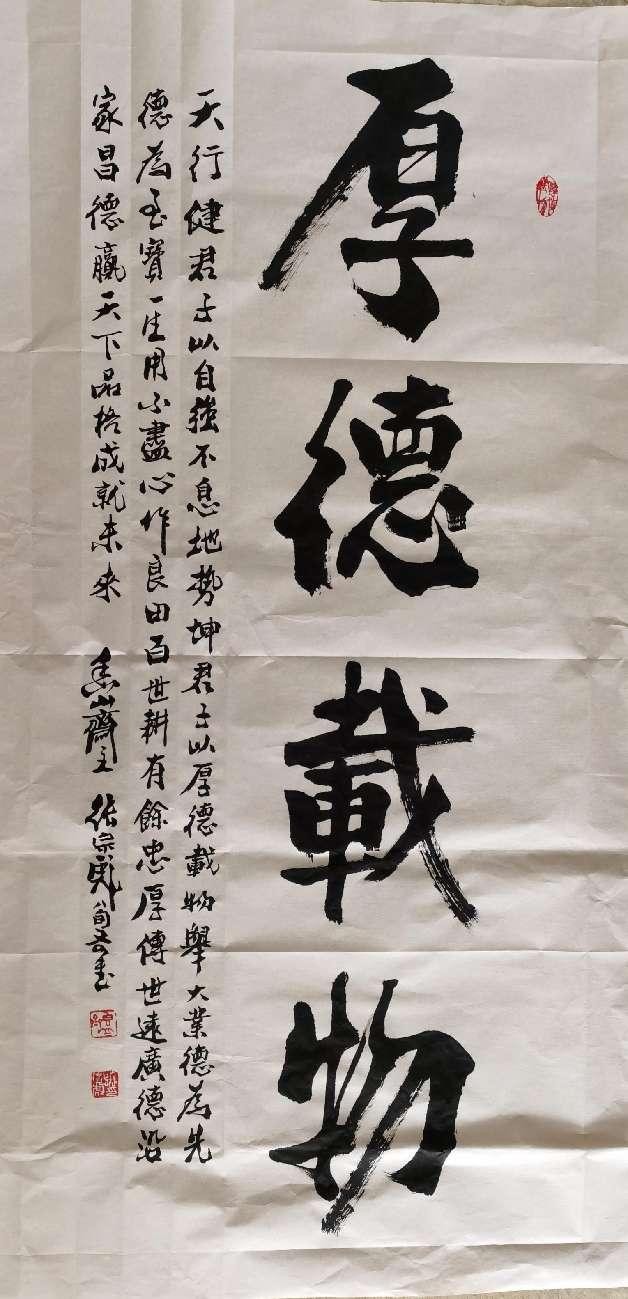 厚德載物
天行健君子以自強不息地勢坤君子以厚德載物舉大業德為先
德為至寶一生用不盡心作良田百世耕有餘忠厚傳世遠廣德沿
家昌德贏天下品格成就未來
山齋主 張宗彪